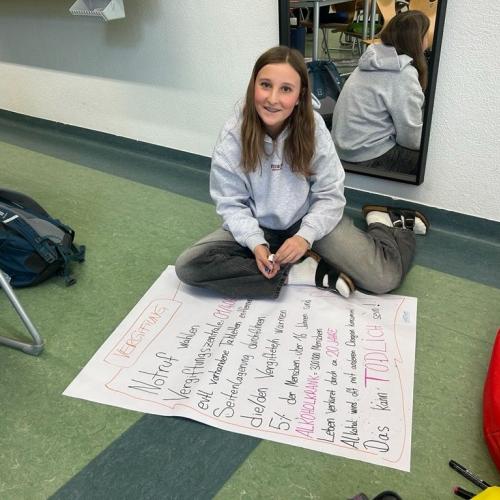 VERGIFTUNG
Notruf wählen
Vergiftungszentrale
evtl. vorhandene Tabletten entfernen
Seitenlagerung durchführen
die/den Vergiftete/n wärmen
5% der Menschen über 16 Jahren sind
ALKOHOLKRANK = 300'000 Menschen
Leben verkürzt durch ca. 20 JAHRE
Alkohol wird oft mit anderen Drogen konsumiert
Das kann TÖDLICH sein!